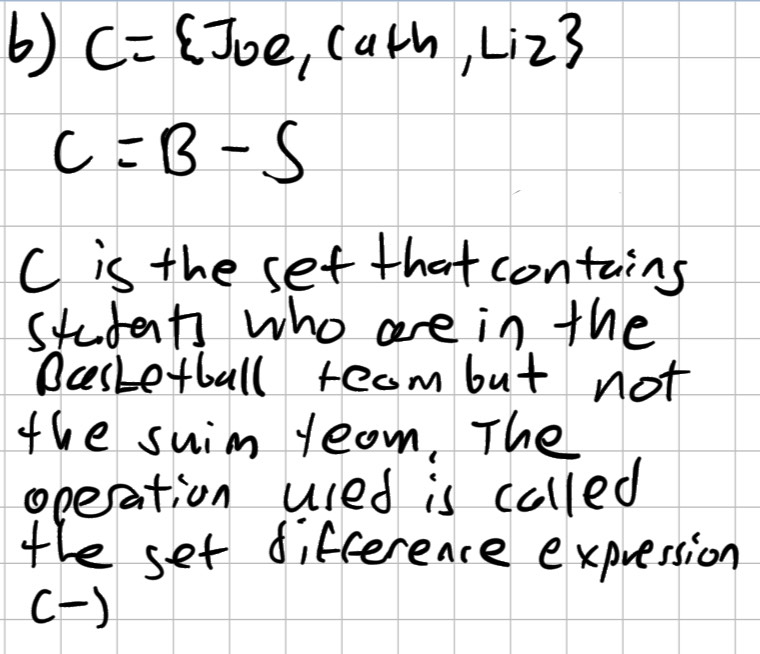 b) C = {Joe, Cath, Liz}
C = B - S
C is the set that contains
students who are in the
Basketball team but not
the suim team. The
operation used is called
the set difference expression
(-)